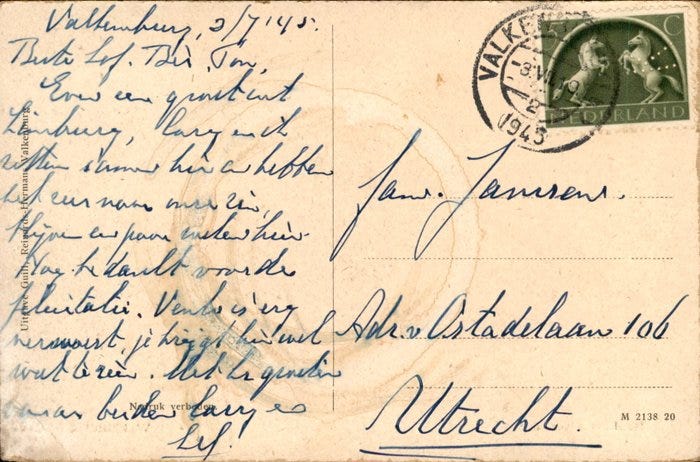 Valkenburg, 3/7/45.
Beste Sef. Bèr, Ton,
Even een groet uit
Limburg, Carry en ik
zitten samen hier en hebben
het eens naar onze zin,
blijven een paar weken hier
Nog bedankt voor de
felicitatie. Venlo is erg
verwoest, je krijgt hier wel
wat te zien. Met hr groeten
van ons beiden Carry en
Sef!
Uitgave Guill. Reinards-Hermans, Valkenburg
Nadruk verboden
VALKENBURG
3 VII 19
2
1945
C
NEDERLAND
fam. Janssens.
Adr. v Ostadelaan 106
Utrecht.
M 2138 20